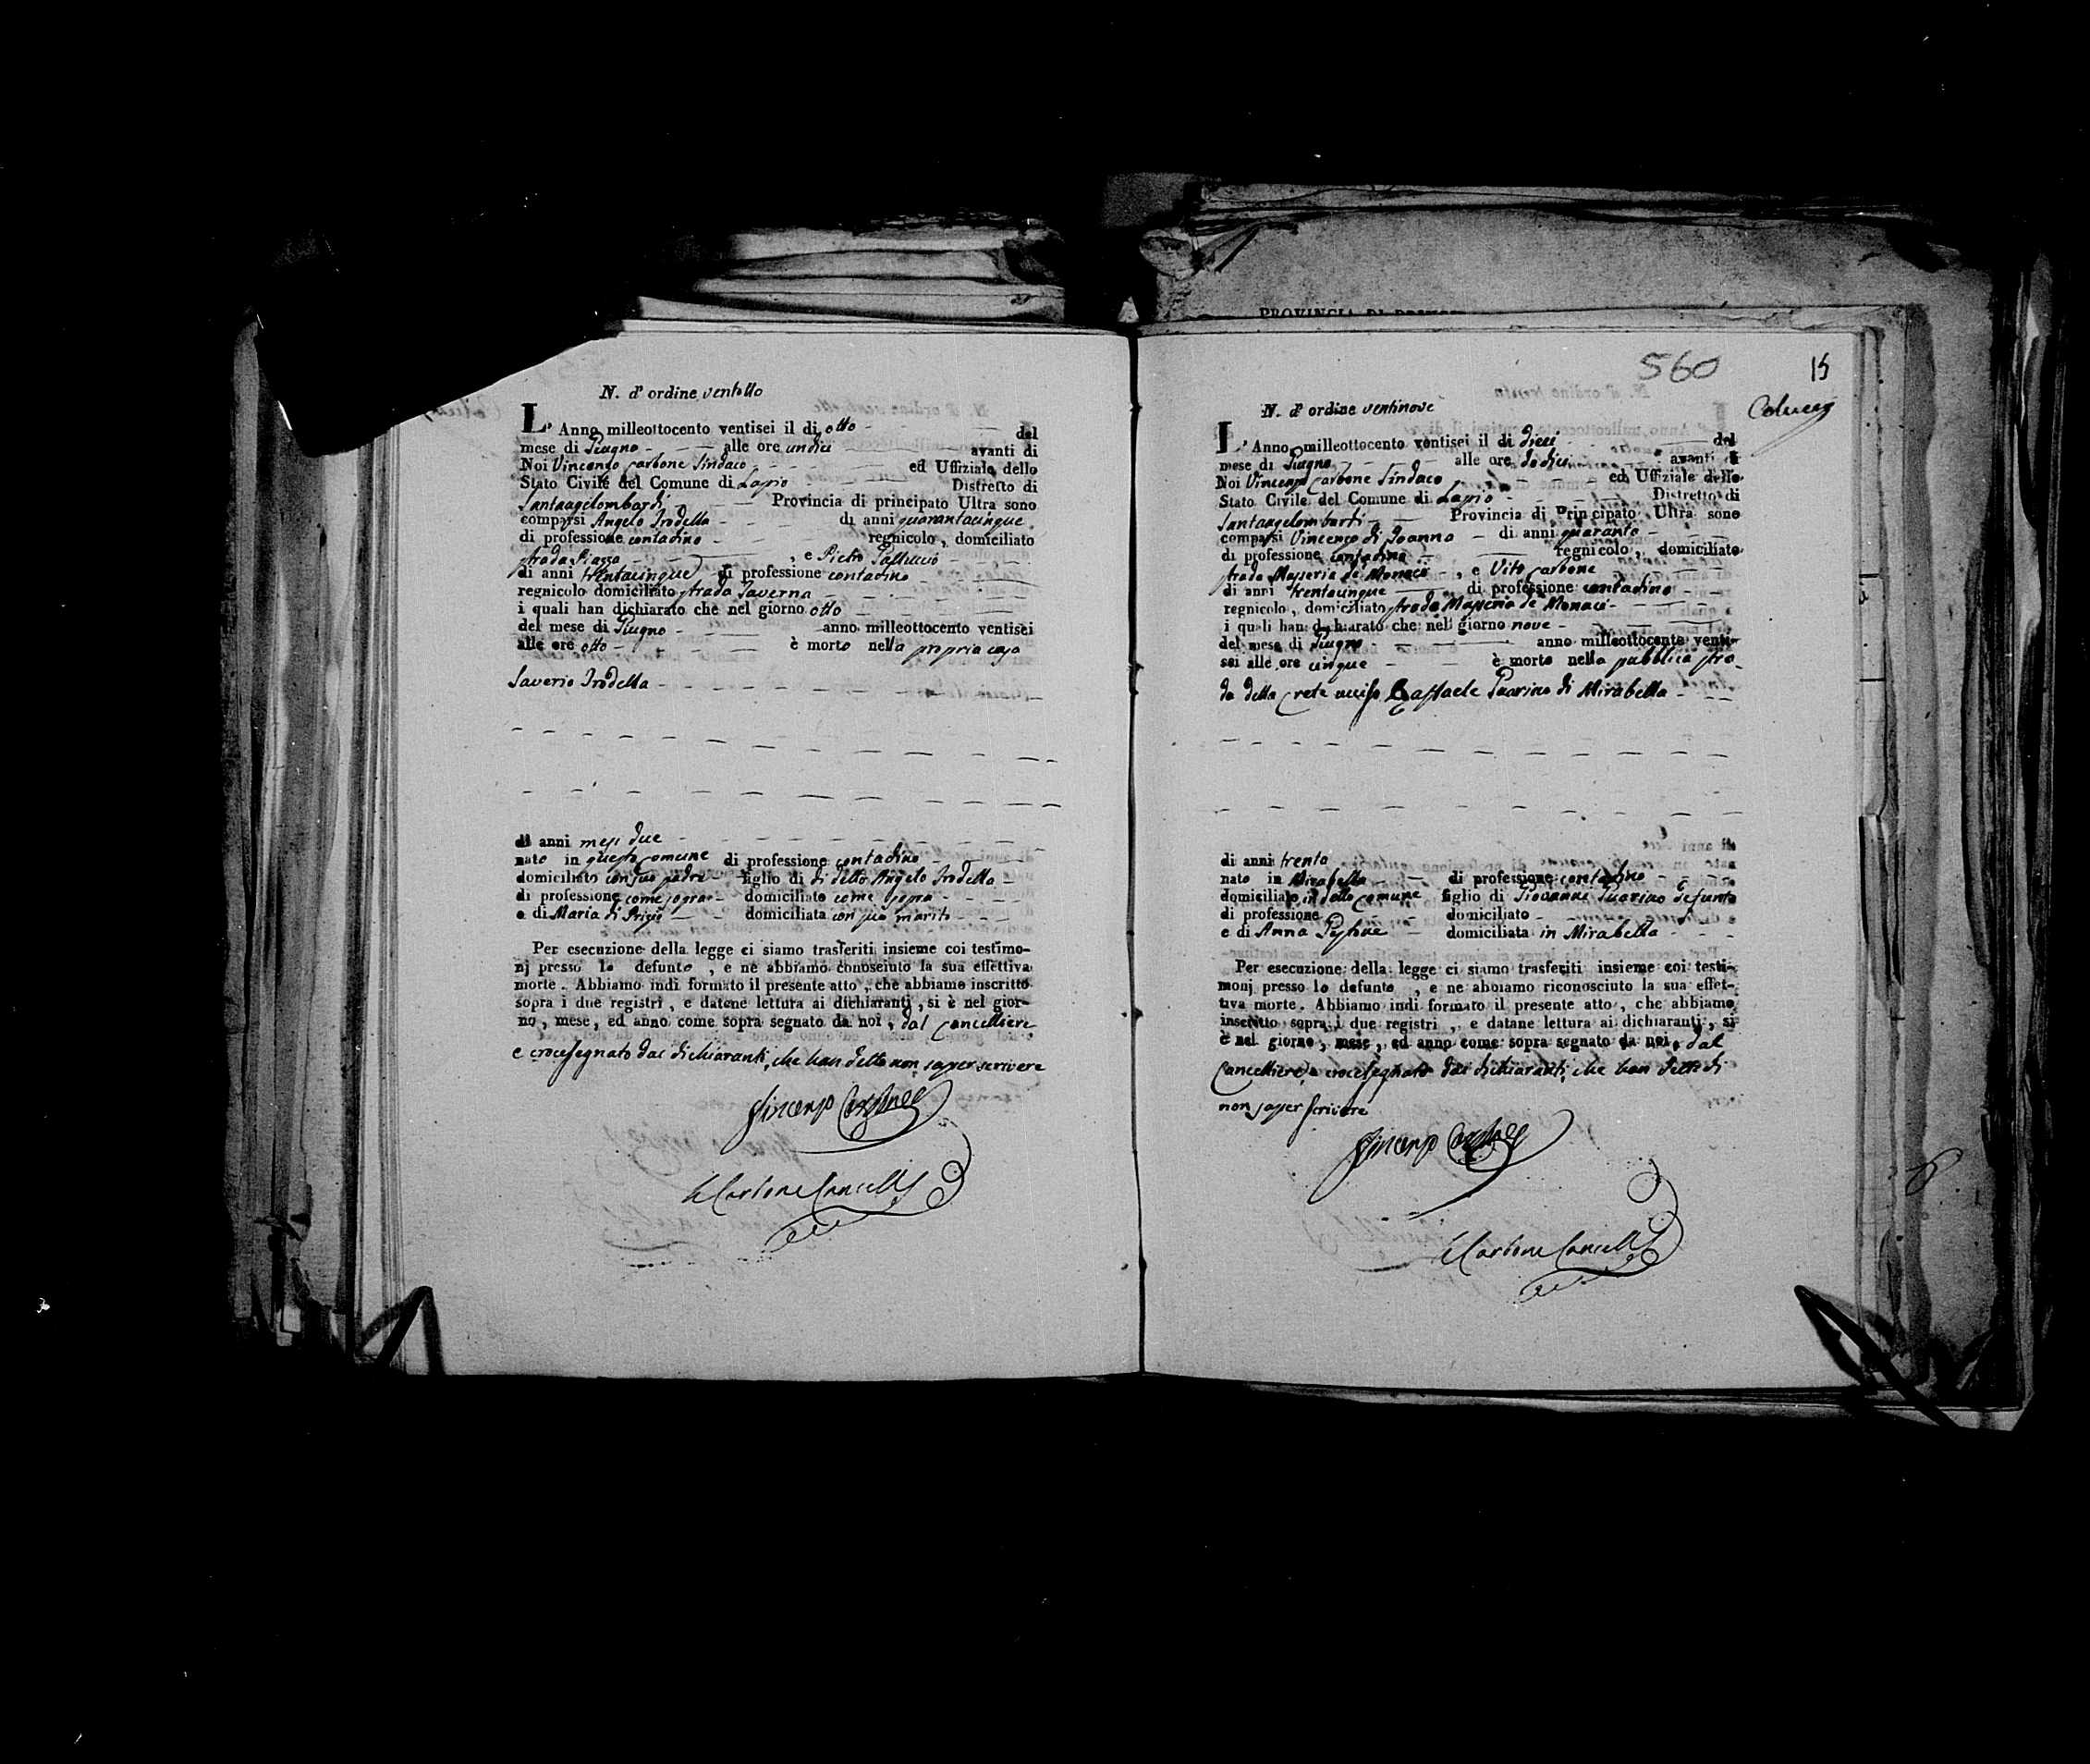 N. d' ordine ventotto
L' Anno milleottocento ventisei il di otto del
mese di Giugno alle ore undici avanti di
Noi Vincenzo Carbone Sindaco ed Uffiziale dello
Stato Civile del Comune di Lapio Distretto di
Santangelombardi Provincia di principato Ultra sono
comparsi Angelo Trodella di anni quarantacinque
di professione contadino regnicolo, domiciliato
strada Piazza , e Pietro
di anni trentacinque di professione contadino
regnicolo domiciliato strada Taverna
i quali han dichiarato che nel giorno otto
del mese di Giugno anno milleottocento ventisei
alle ore otto è morto nella propria casa
Saverio Trodella
di anni mesi due
nato in questo Comune di professione contadino
domiciliato con suo padre figlio di di detto Angelo Trodella
di professione come sopra domiciliato come sopra
e di Maria di Prizio domiciliata con suo marito
Per esecuzione della legge ci siamo trasferiti insieme coi testimo-
nj presso lo defunto , e ne abbiamo conosciuto la sua effettiva
morte. Abbiamo indi formato il presente atto, che abbiamo inscritto
sopra i due registri, e datone lettura ai dichiaranti, si è nel gior-
no, mese, ed anno come sopra segnato da noi, dal Cancelliere
e crocesegnato dai dichiaranti, che han detto non saper scrivere
Vincenzo Carbone
Carbone Cancell
PROVINCIA DI
560
15
N. d' ordine ventinove
L' Anno milleottocento ventisei il di dieci del
mese di Giugno alle ore dodici avanti di
Noi Vincenzo Carbone Sindaco ed Uffiziale dello
Stato Civile del Comune di Lapio Distretto di
Santangelombardi Provincia di Principato Ultra sono
comparsi Vincenzo di Joanno di anni quaranta
di professione contadino regnicolo, domiciliato
strada Masseria de Monaci , e Vito Carbone
di anni trentacinque di professione contadino
regnicolo, domiciliato strada Masseria de Monaci
i quali han dichiarato che nel giorno nove
del mese di Giugno anno milleottocento venti-
sei alle ore cinque è morto nella pubblica stra-
da della Crete ucciso Raffaele Guarino di Mirabella
di anni trenta
nato in Mirabella di professione contadino
domiciliato in detto Comune figlio di Giovanni Guarino defunto
di professione domiciliato
e di Anna domiciliata in Mirabella
Per esecuzione della legge ci siamo trasferiti insieme coi testi-
monj presso lo defunto , e ne abbiamo riconosciuto la sua effet-
tiva morte. Abbiamo indi formato il presente atto, che abbiamo
inscritto sopra i due registri, e datane lettura ai dichiaranti, si
è nel giorno, mese, ed anno come sopra segnato da noi, dal
Cancelliere, e crocesegnato dai dichiaranti, che han detto di
non saper scrivere
Vincenzo Carbone
Carbone Cancell